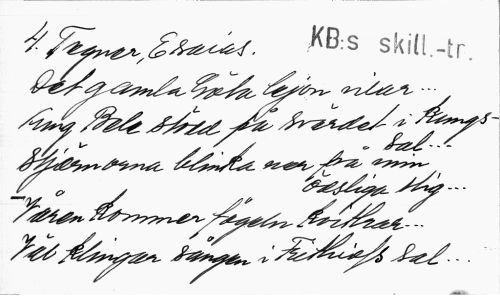 4. Tegner, Esaias.
KB:s skill.-tr.
Det gamla Göta lejon vilar...
Kung Bele stöed på svärdet i kungs-
sal...
Stjärnorna blinka ner på min
ödsliga stig...
Våren kommer fågeln kvittrar...
Väl klingar sången i Frithiofs sal...